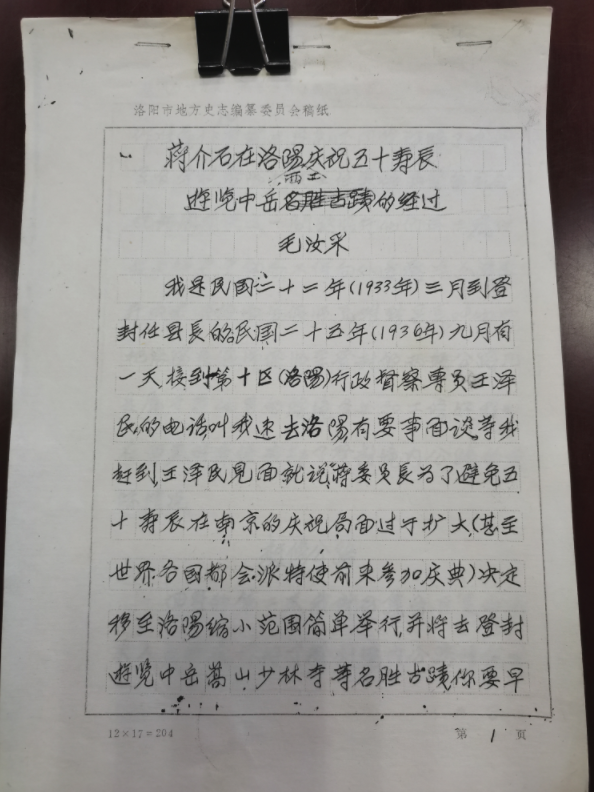 洛阳市地方史志编纂委员会稿纸
蒋介石在洛陽庆祝五十寿辰
遊览中岳名胜古蹟的经过
毛汝采
我是民国二十二年(1933年)三月到登
封任县長的民国二十五年(1936年)九月有
一天接到第十区(洛陽)行政督察專员王泽
民的电话叫我速去洛陽有要事面谈等我
赶到王泽民見面就说蒋委員長为了避免五
十寿辰在南京的庆祝局面过于扩大(甚至
世界各国都会派特使前来参加庆典)决定
移至洛陽缩小范围简单举行并将去登封
遊览中岳嵩山少林寺等名胜古蹟你要早
12×17=204
第 1 页